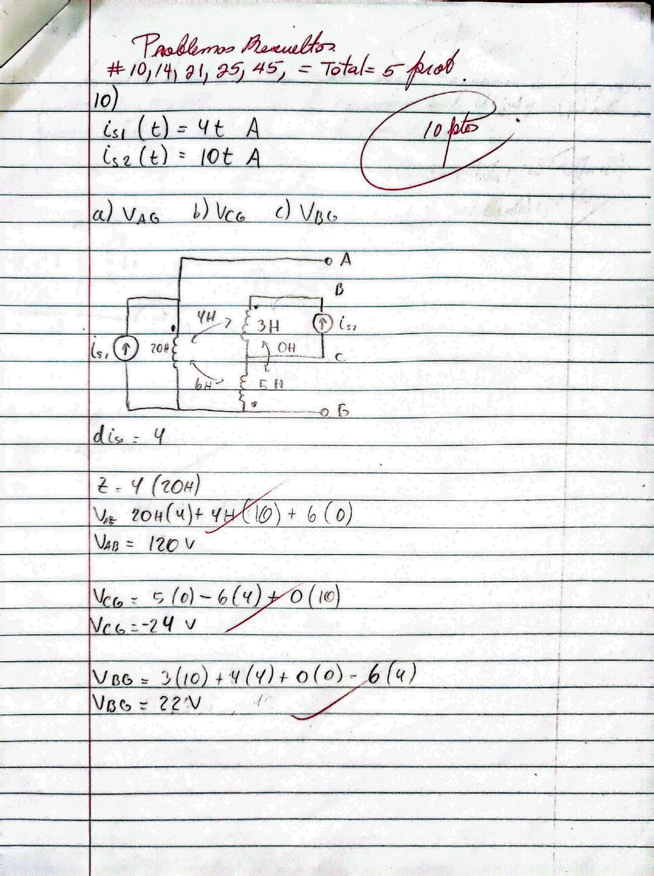 Problemas Resueltos
#10, 14, 21, 25, 45, = Total = 5 prob.
10)
is1 (t) = 4t A
10 ptos
is2 (t) = 10t A
a) VAG b) VCG c) VBG
A
B
4H
3H
is2
is1
20H
0H
C
6H
5H
G
dis1 = 4
Z = 4 (20H)
20H(4) + 4H (10) + 6 (0)
VAB = 120 V
VCG = 5 (0) - 6 (4) + 0 (10)
VCG = -24 V
VBG = 3 (10) + 4 (4) + 0 (0) - 6 (4)
VBG = 22 V